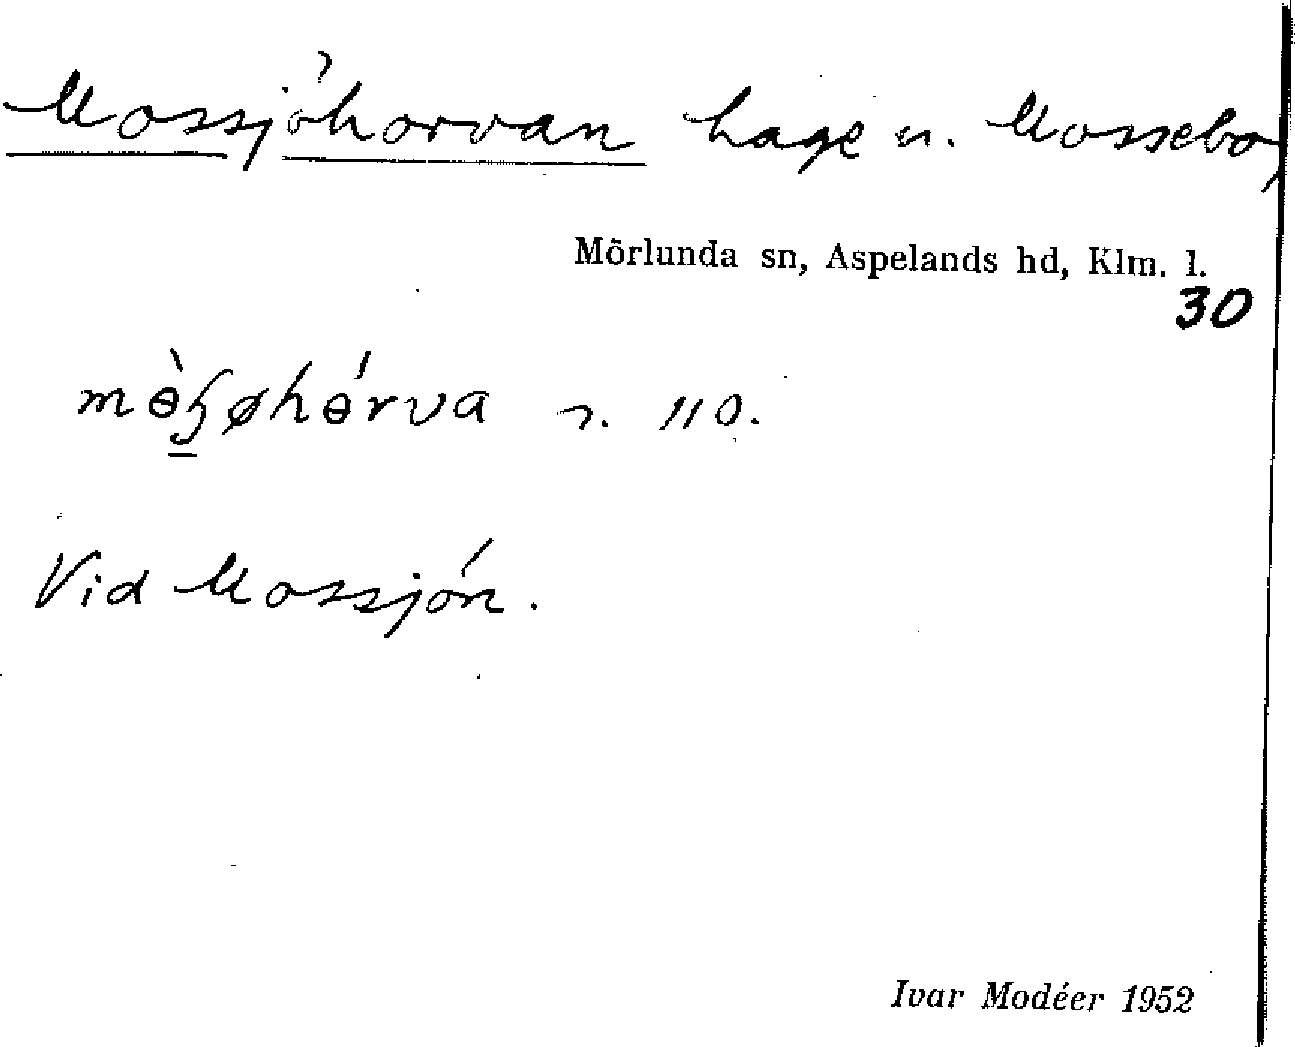 Mossjöhorvan hage n. Mossebo,
Mörlunda sn, Aspelands hd, Klm. l.
30
mɵ̀ɧøhɵ́rva n. 110.
Vid Mossjön.
Ivar Modéer 1952